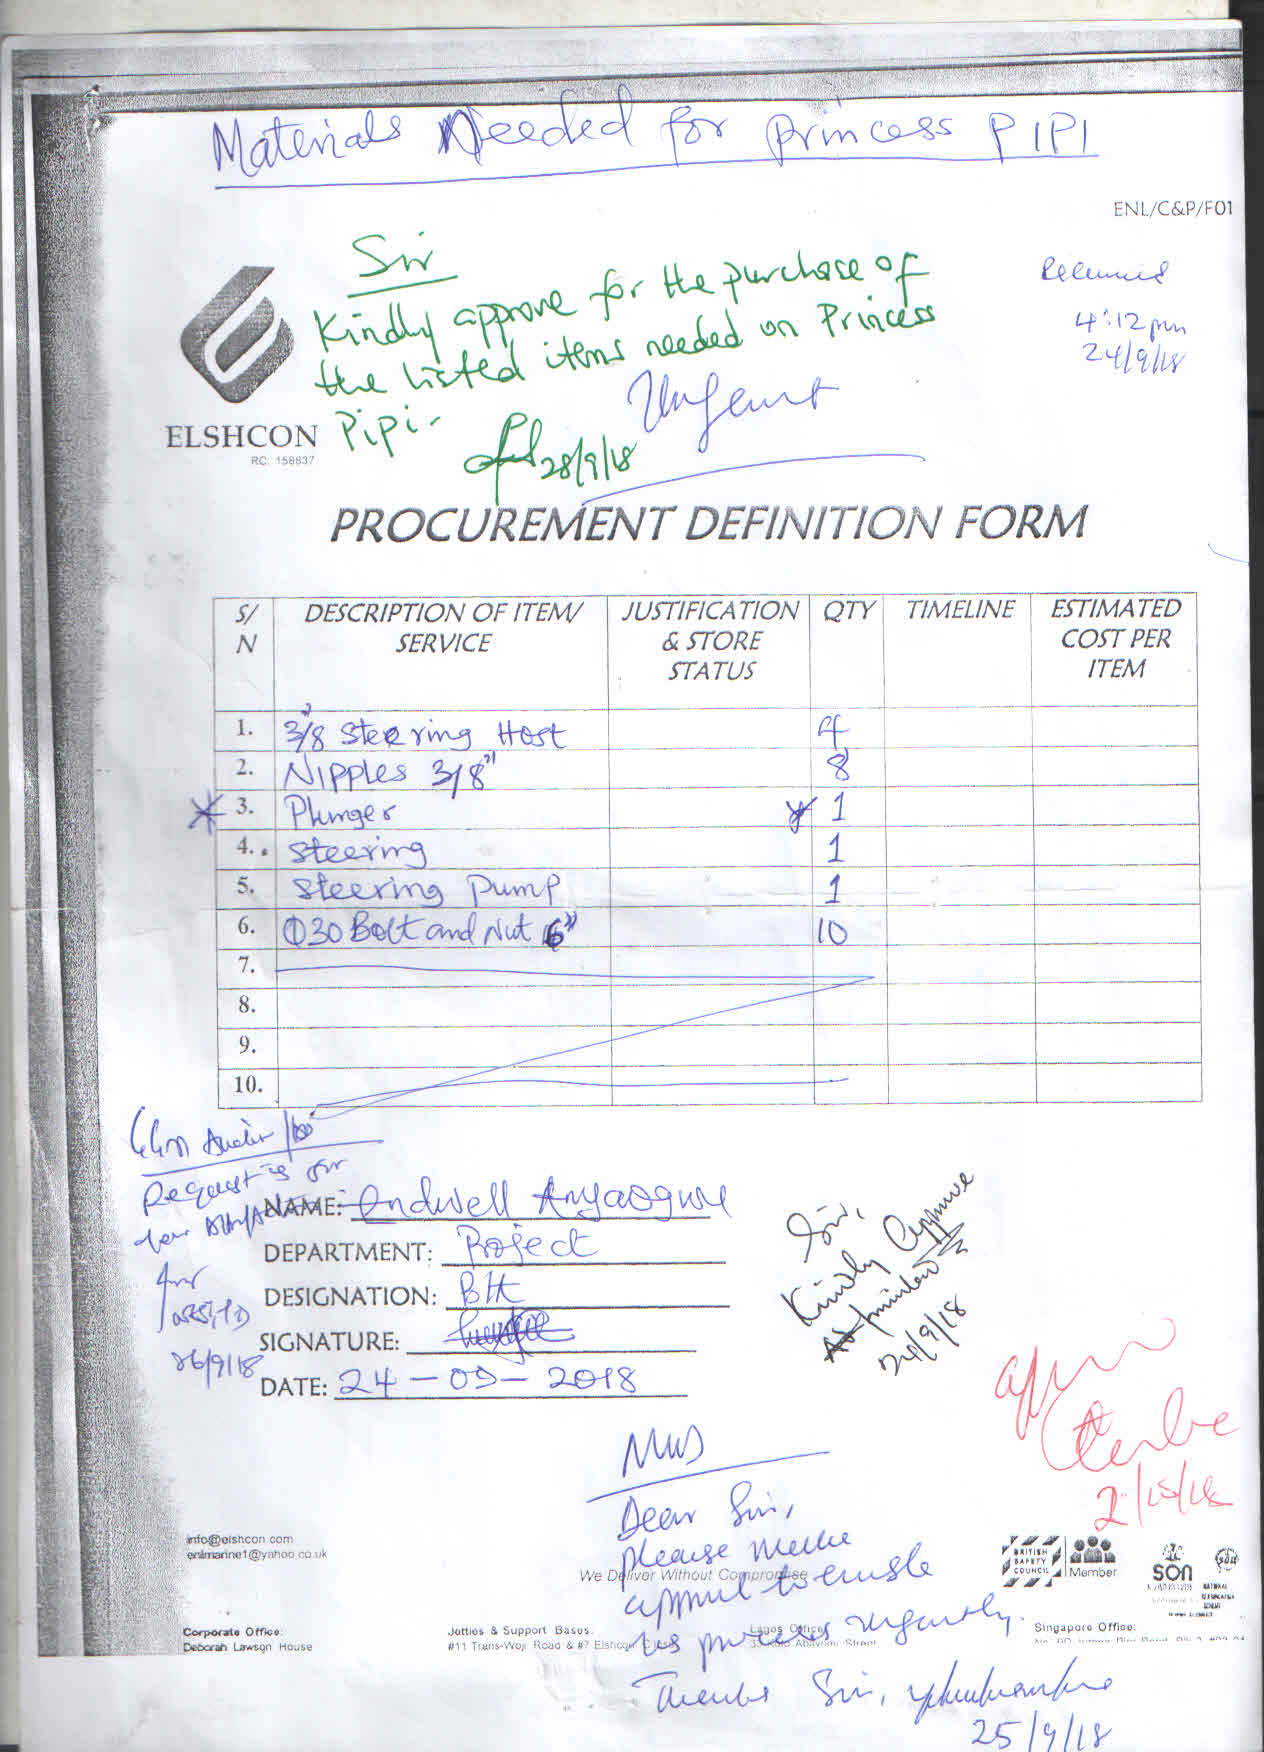 Materials Needed for Princess PIPI
ENL/C&P/F01
Sir
Kindly approve for the purchase of
the listed items needed on Princess
Pipi.
28/9/18
Urgent
4:12pm
24/9/18
ELSHCON
RC: 158837
PROCUREMENT DEFINITION FORM
S/N DESCRIPTION OF ITEM/ SERVICE JUSTIFICATION & STORE STATUS QTY TIMELINE ESTIMATED COST PER ITEM
1. 3/8 Steering Host 4
2. Nipples 3/8" 8
3. Plunger 1
4. Steering 1
5. Steering Pump 1
6. Φ30 Bolt and Nut 6" 10
7.
8.
9.
10.
Request is for
26/9/18
NAME: Endwell Anyaogwu
DEPARTMENT: Project
DESIGNATION:
SIGNATURE:
DATE: 24-09-2018
Sir,
Kindly Approve
24/9/18
2/10/18
MWS
Dear Sir,
please make
approval to enable
us process urgently.
Thanks Sir,
25/9/18
info@elshcon.com
enlmarine1@yahoo.co.uk
We Deliver Without Compromise
BRITISH
SAFETY
COUNCIL
Member
SON
Corporate Office:
Deborah Lawson House
Jetties & Support Bases:
#11 Trans-Woji Road & #7 Elshcon
Lagos Office:
Street
Singapore Office: